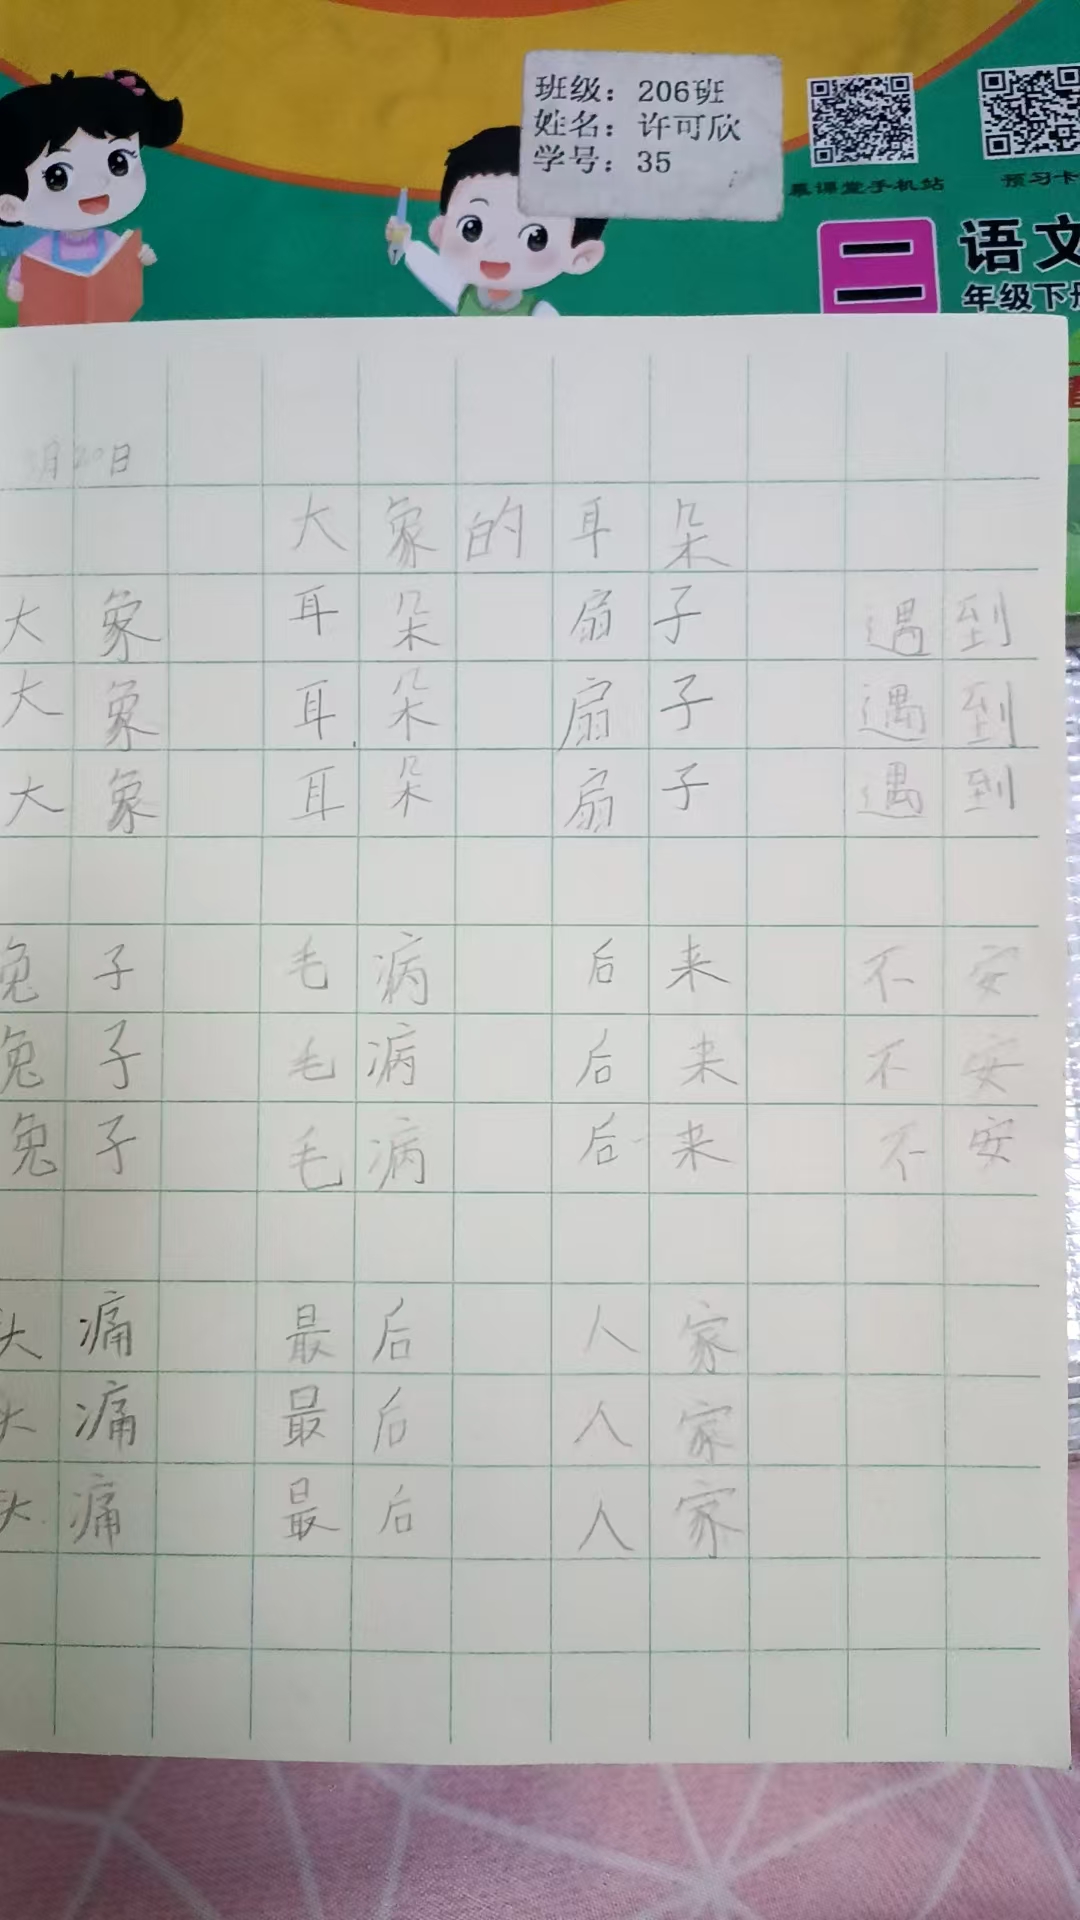 班级：206班
姓名：许可欣
学号：35
慕课堂手机站
预习卡
二
语文
年级下册
月20日
大象的耳朵
大象 耳朵 扇子 遇到
大象 耳朵 扇子 遇到
大象 耳朵 扇子 遇到
兔子 毛病 后来 不安
兔子 毛病 后来 不安
兔子 毛病 后来 不安
头痛 最后 人家
头痛 最后 人家
头痛 最后 人家